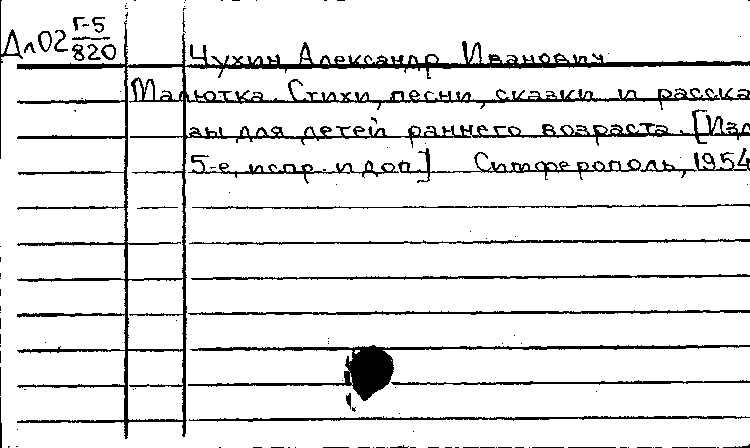 Дл02 Г-5
820
Чухин, Александр Иванович
Малютка. Стихи, песни, сказки и расска
зы для детей раннего возраста. [Изд.
5-е, испр. и доп.] Симферополь, 1954